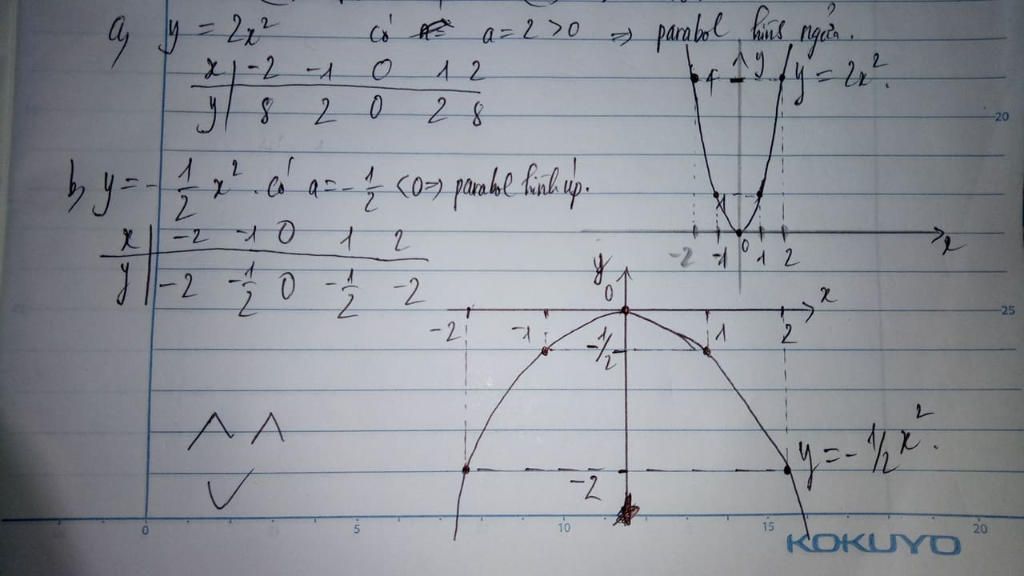 a, y = 2x² có a = 2 > 0 => parabol hình ngửa.
x -2 -1 0 1 2
y 8 2 0 2 8
y
y = 2x².
20
-2 -1 0 1 2 x
b, y = -1/2 x². có a = -1/2 < 0 => parabol hình úp.
x -2 -1 0 1 2
y -2 -1/2 0 -1/2 -2
y
0 x
25
-2 -1 1 2
-1/2
y = -1/2 x².
-2
0 5 10 15 20
KOKUYO